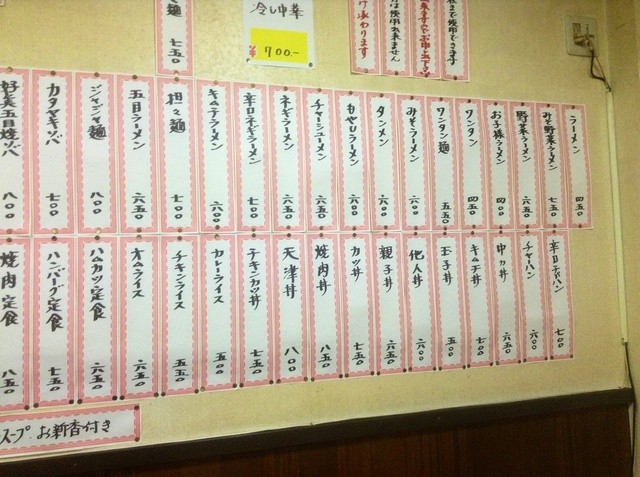 麺 七五〇
冷し中華
¥700.-
け承わります
ラーメン 四五〇
みそ野菜ラーメン 七五〇
野菜ラーメン 六五〇
お子様ラーメン 四〇〇
ワンタン 四五〇
ワンタン麺 五五〇
みそラーメン 六〇〇
タンメン 六〇〇
もやしラーメン 六五〇
チャーシューメン 六五〇
ネギラーメン 六五〇
辛口ネギラーメン 七〇〇
キムチラーメン 六〇〇
担々麺 七〇〇
五目ラーメン 六五〇
ジャジャ麺 八〇〇
カタヤキソバ 七〇〇
五目焼ソバ 八〇〇
辛口チャーハン 七〇〇
チャーハン 六〇〇
中カ丼 六五〇
キムチ丼 七〇〇
玉子丼 五〇〇
他人丼 六〇〇
親子丼 六五〇
カツ丼 七五〇
焼肉丼 八五〇
天津丼 八〇〇
チキンカツ丼 七五〇
カレーライス 五〇〇
チキンライス 五五〇
オムライス 六五〇
ハムカツ定食 六五〇
ハンバーグ定食 七五〇
焼肉定食 八五〇
スープ お新香付き